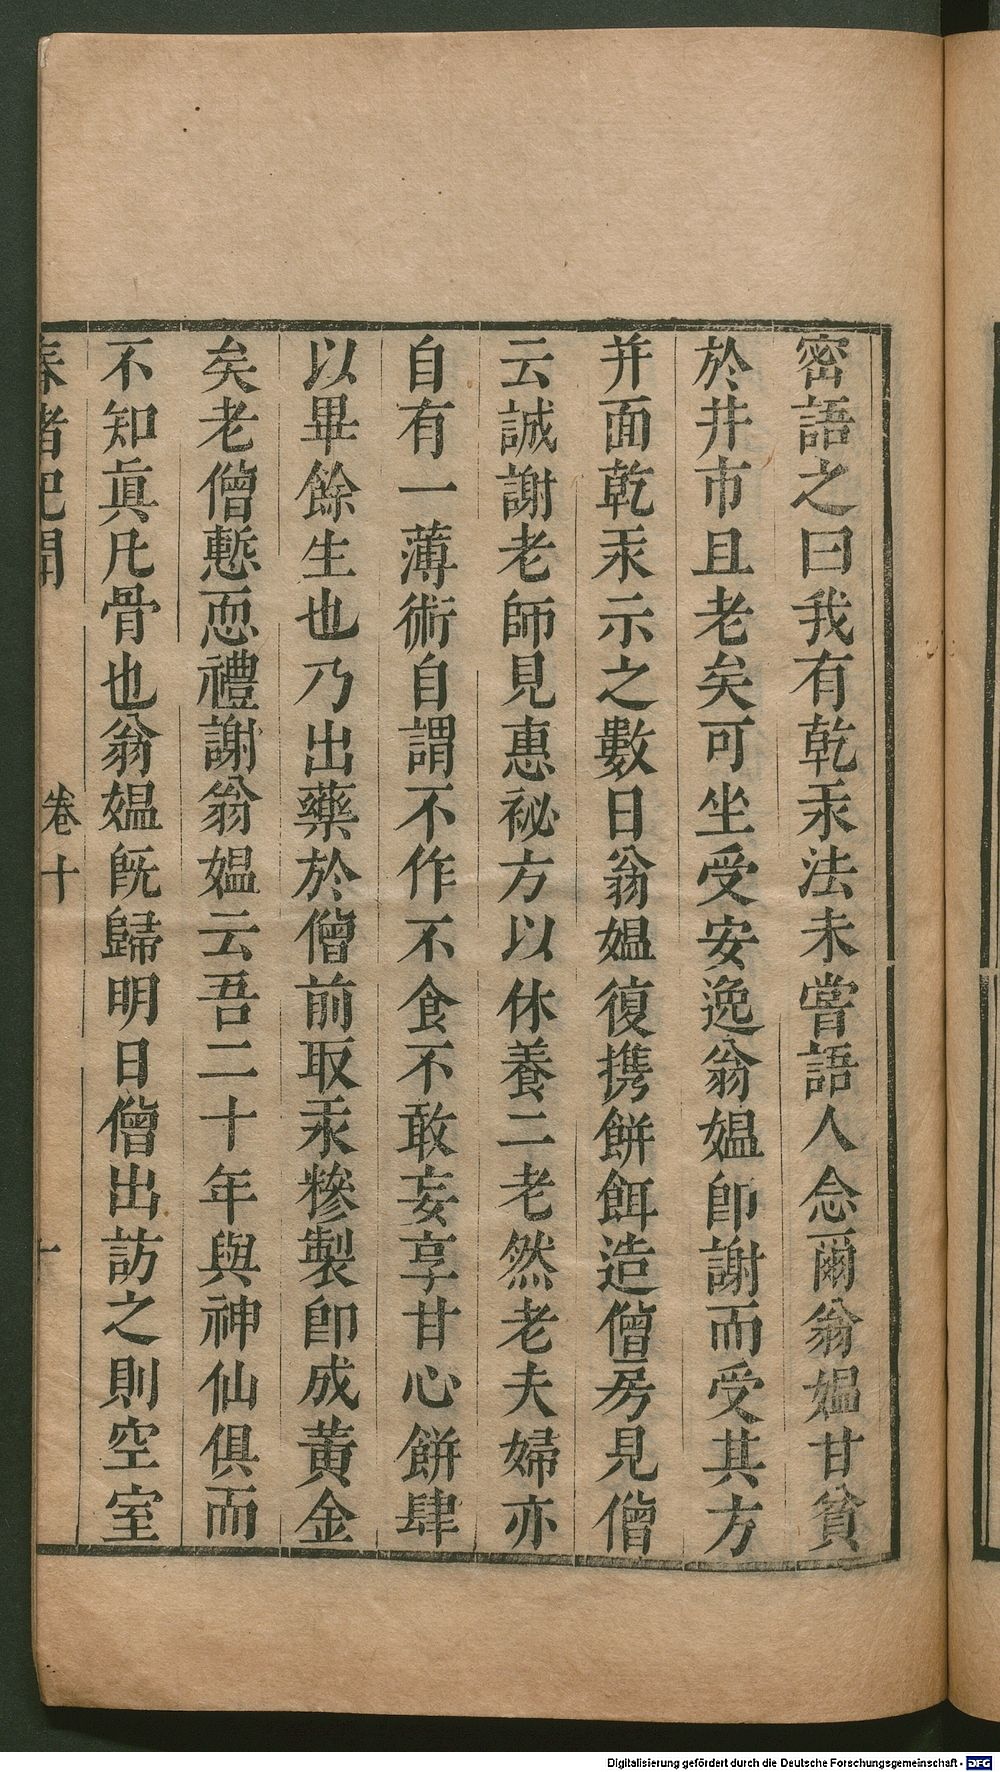 密語之曰我有乾汞法未嘗語人念爾翁媼甘貧
於井市且老矣可坐受安逸翁媼卽謝而受其方
并面乾汞示之數日翁媼復携餅餌造僧房見僧
云誠謝老師見惠祕方以休養二老然老夫婦亦
自有一薄術自謂不作不食不敢妄享甘心餅肆
以畢餘生也乃出藥於僧前取汞糝製卽成黃金
矣老僧慙恧禮謝翁媼云吾二十年與神仙俱而
不知眞凡骨也翁媼旣歸明日僧出訪之則空室
春渚紀聞 卷十 十
Digitalisierung gefördert durch die Deutsche Forschungsgemeinschaft - DFG